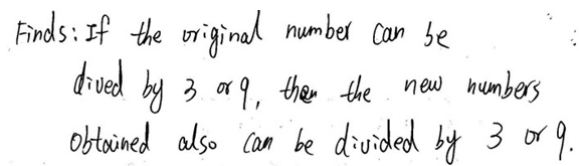 Finds: If the original number can be
dived by 3 or 9, then the new numbers
obtained also can be divided by 3 or 9.